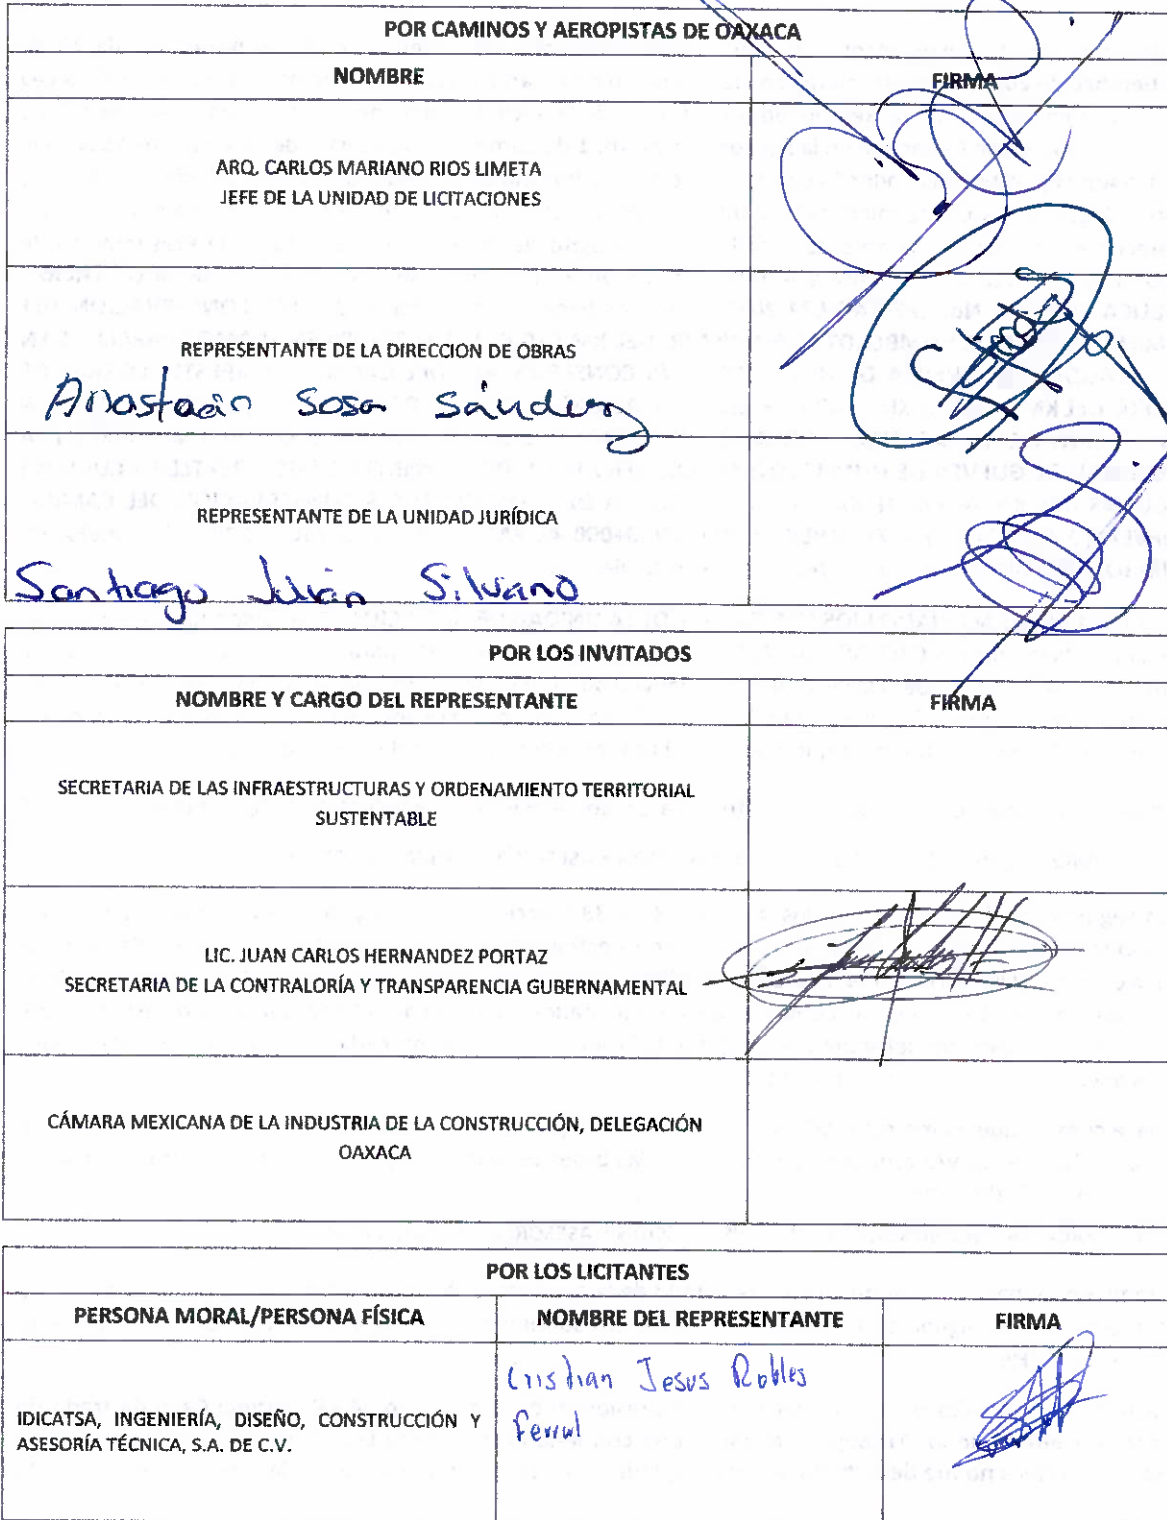 POR CAMINOS Y AEROPISTAS DE OAXACA
NOMBRE FIRMA
ARQ. CARLOS MARIANO RIOS LIMETA
JEFE DE LA UNIDAD DE LICITACIONES
REPRESENTANTE DE LA DIRECCION DE OBRAS
Anastacio Sosa Sánchez
REPRESENTANTE DE LA UNIDAD JURÍDICA
Santiago Julián Silvano
POR LOS INVITADOS
NOMBRE Y CARGO DEL REPRESENTANTE FIRMA
SECRETARIA DE LAS INFRAESTRUCTURAS Y ORDENAMIENTO TERRITORIAL
SUSTENTABLE
LIC. JUAN CARLOS HERNANDEZ PORTAZ
SECRETARIA DE LA CONTRALORÍA Y TRANSPARENCIA GUBERNAMENTAL
CÁMARA MEXICANA DE LA INDUSTRIA DE LA CONSTRUCCIÓN, DELEGACIÓN
OAXACA
POR LOS LICITANTES
PERSONA MORAL/PERSONA FÍSICA NOMBRE DEL REPRESENTANTE FIRMA
Cristian Jesus Robles
IDICATSA, INGENIERÍA, DISEÑO, CONSTRUCCIÓN Y
ASESORÍA TÉCNICA, S.A. DE C.V.